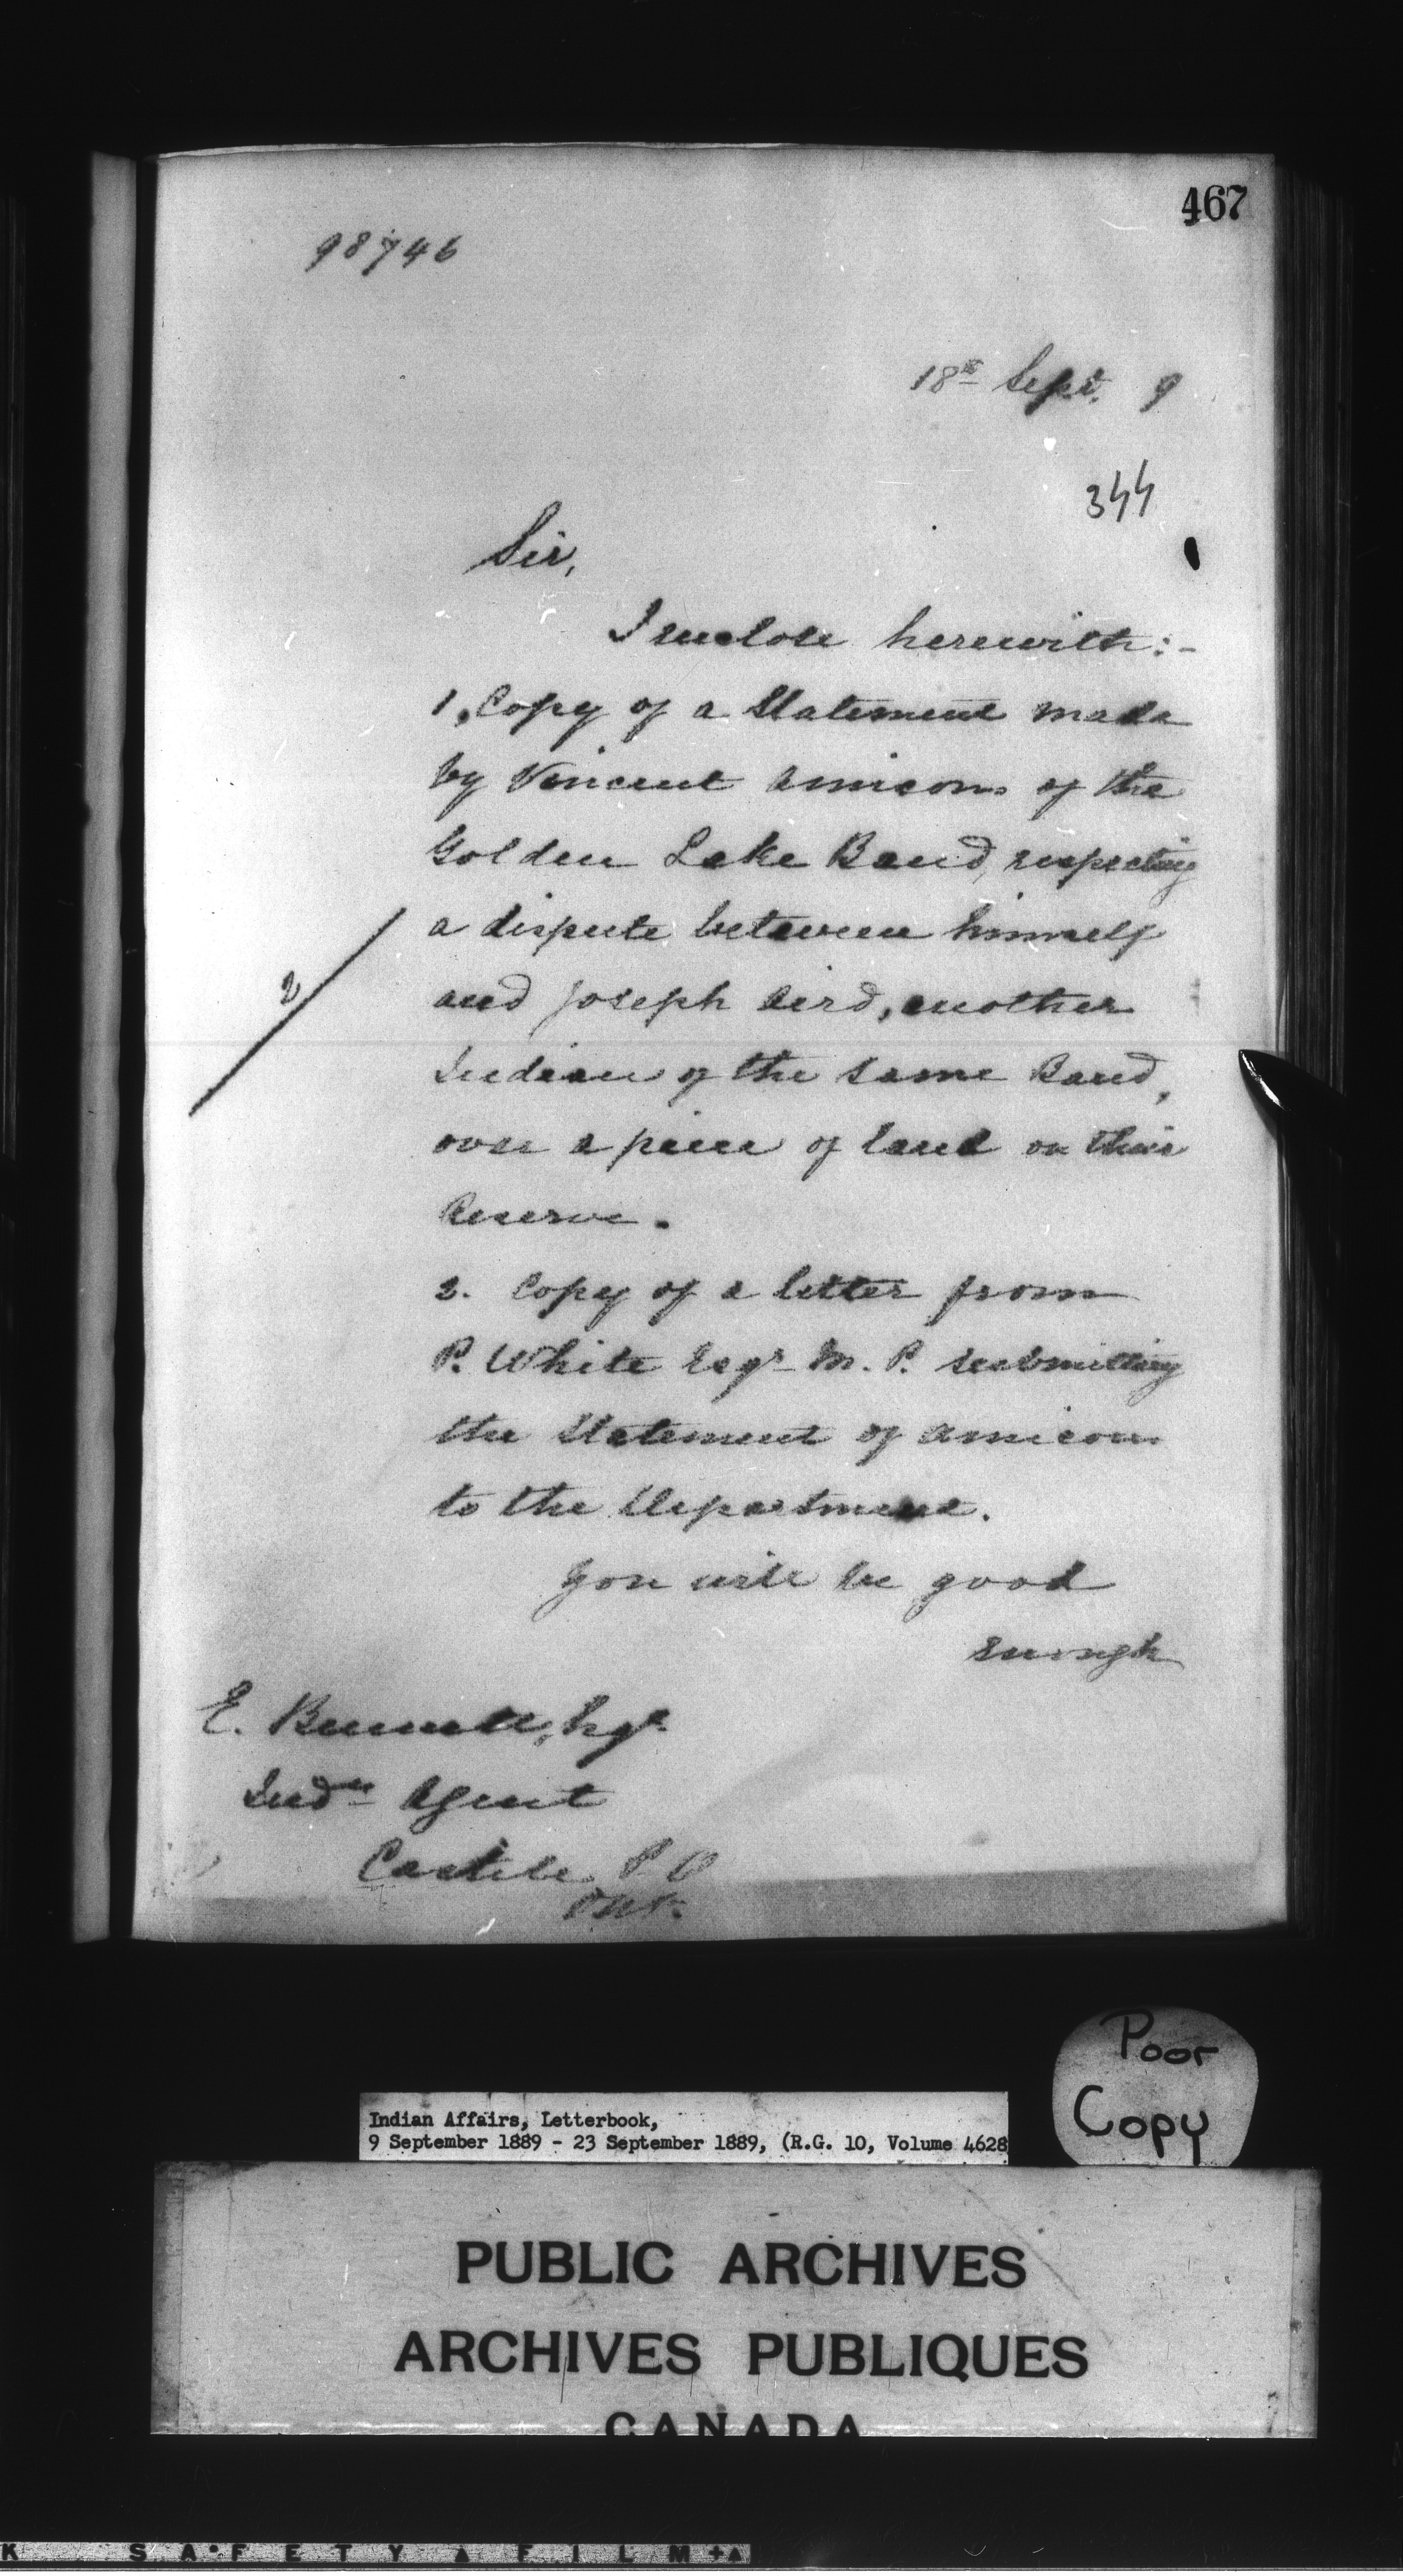 467
98746
18th Sept. 9
344
Sir,
I enclose herewith:-
1, Copy of a Statement made
by Vincent Amicons of the
Golden Lake Band, respecting
a dispute between himself
2
and Joseph Aird, another
Indian of the same Band,
over a piece of land on their
Reserve.
2. Copy of a letter from
P. White Esqr M. P. submitting
the Statement of Amicons
to the Department.
You will be good
enough
E. Bennett, Esqr
Indn Agent
Castile P O
Ont.
Poor
Copy
Indian Affairs, Letterbook,
9 September 1889 - 23 September 1889, (R.G. 10, Volume 4628
PUBLIC ARCHIVES
ARCHIVES PUBLIQUES
CANADA
K SAFETY FILM